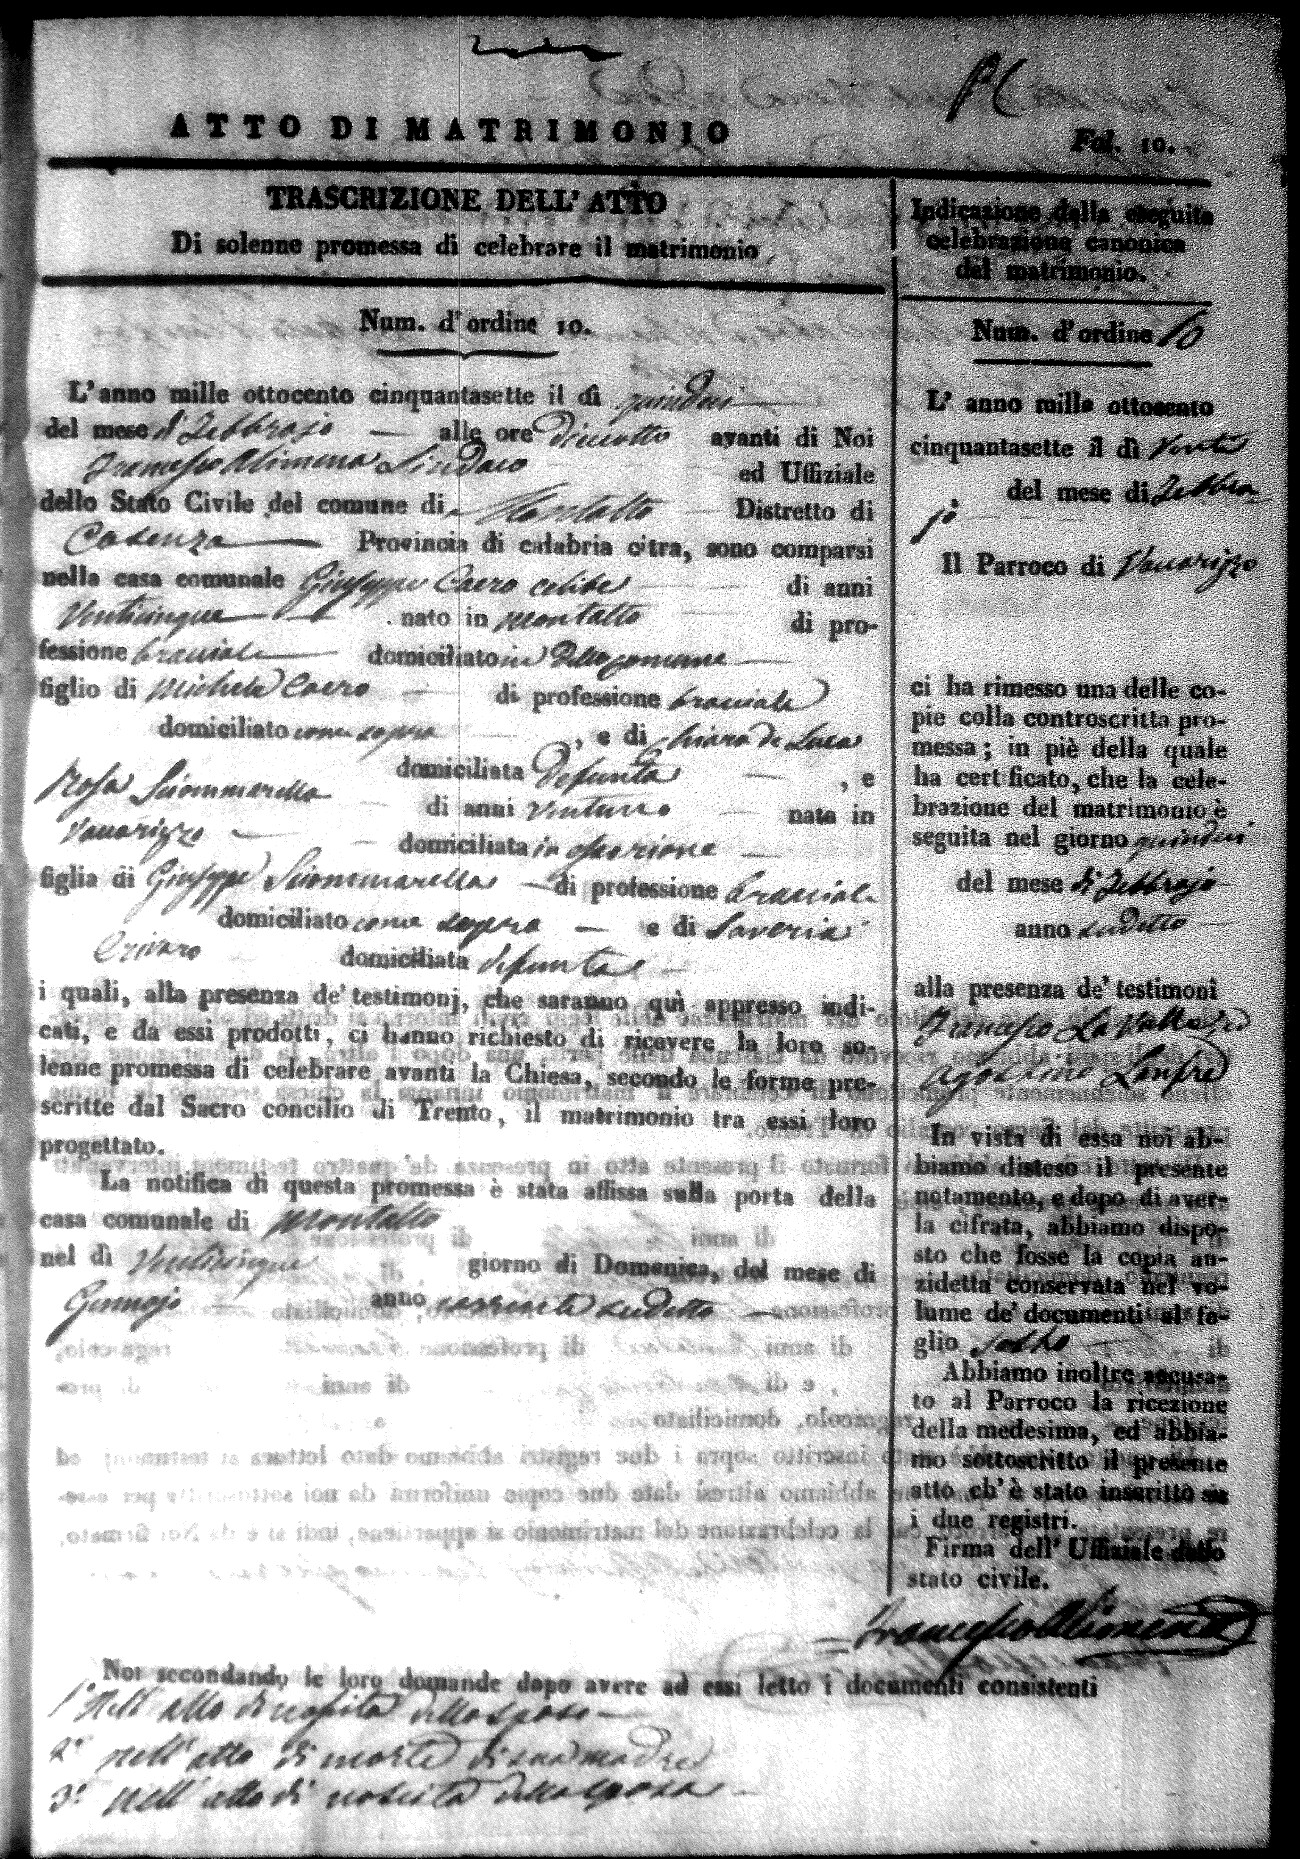 ATTO DI MATRIMONIO
Fol. 10.
TRASCRIZIONE DELL' ATTO
Di solenne promessa di celebrare il matrimonio
Num. d'ordine 10.
L'anno mille ottocento cinquantasette il dì quindici
del mese di Febbrajo alle ore diciotto avanti di Noi
Francesco Alimena Sindaco ed Uffiziale
dello Stato Civile del comune di Montalto Distretto di
Cosenza Provincia di calabria citra, sono comparsi
nella casa comunale Giuseppe Caero celibe di anni
Venticinque nato in Montalto di pro-
fessione bracciale domiciliato in detto comune
figlio di Michele Caero di professione bracciale
domiciliato come sopra, e di Chiara de Luca
domiciliata defunta, e
Rosa Sciommarella di anni ventuno nata in
Vaccarizzo domiciliata in
figlia di Giuseppe Sciommarella di professione bracciale
domiciliato come sopra e di Saveria
Crivaro domiciliata defunta
i quali, alla presenza de' testimonj, che saranno quì appresso indi-
cati, e da essi prodotti, ci hanno richiesto di ricevere la loro so-
lenne promessa di celebrare avanti la Chiesa, secondo le forme pre-
scritte dal Sacro concilio di Trento, il matrimonio tra essi loro
progettato.
La notifica di questa promessa è stata affissa sulla porta della
casa comunale di Montalto
nel dì Venticinque giorno di Domenica, del mese di
Gennajo anno corrente suddetto
Noi secondando le loro domande dopo avere ad essi letto i documenti consistenti
1° Nell'atto di nascita dello sposo
2° nell'atto di morte di sua madre
3° nell'atto di nascita della sposa
Indicazione della eseguita
celebrazione canonica
del matrimonio.
Num. d'ordine 10
L' anno mille ottocento
cinquantasette il dì venti
del mese di Febbra
jo
Il Parroco di Vaccarizzo
ci ha rimesso una delle co-
pie colla controscritta pro-
messa; in piè della quale
ha cert ficato, che la cele-
brazione del matrimonio è
seguita nel giorno quindici
del mese di Febbrajo
anno suddetto
alla presenza de' testimoni
Francesco La Valle e di
Agostino Lanfre
In vista di essa noi ab-
biamo disteso il presente
notamento, e dopo di aver-
la cifrata, abbiamo dispo-
sto che fosse la copia an-
zidetta conservata nel vo-
lume de' documenti al fo-
glio
Abbiamo inoltre accusa-
to al Parroco la ricezione
della medesima, ed abbia-
mo sottoscritto il presente
atto ch' è stato inscritto su
i due registri.
Firma dell' Uffiziale dello
stato civile.
Francesco Alimena